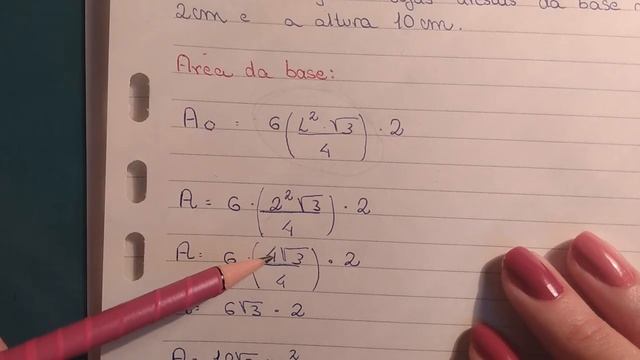 arestas da base
2cm e a altura 10cm.
Área da base:
A₀ = 6 (L² · √3 / 4) · 2
A = 6 · (2² √3 / 4) · 2
A = 6 · (4√3 / 4) · 2
6√3 · 2